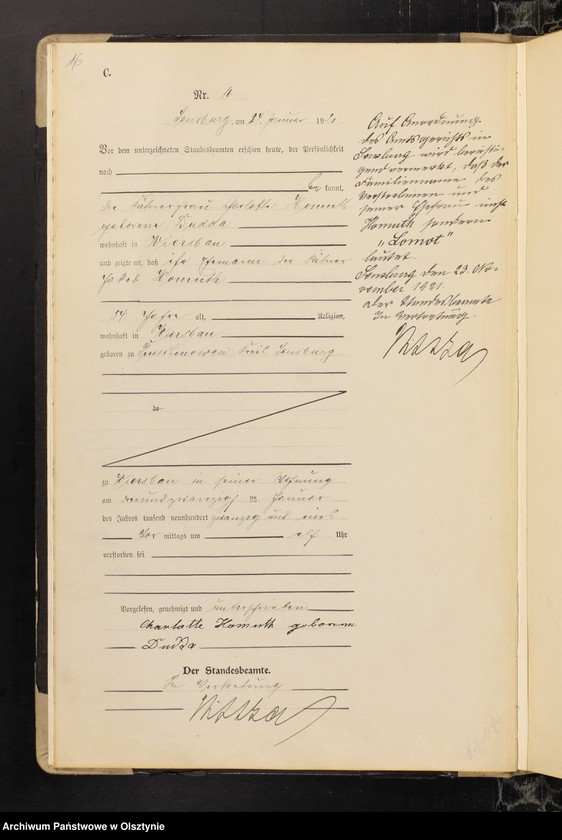 16
C.
Nr. 4
Sensburg, am 24. Januar 1921.
Vor dem unterzeichneten Standesbeamten erschien heute, der Persönlichkeit
nach
be kannt,
die Käthnerfrau Charlotte Homuth
geborene Dudda
wohnhaft in Wiersbau
und zeigte an, daß ihr Ehemann der Käthner
Jakob Homuth
54 Jahre alt, Religion,
wohnhaft in Wiersbau
geboren zu Kreis Sensburg
de
zu Wiersbau in seiner Wohnung
am dreiundzwanzigsten Januar
des Jahres tausend neunhundert zwanzig und eins
Vor mittags um elf Uhr
verstorben sei.
Vorgelesen, genehmigt und unterschrieben
Charlotte Homuth geborene
Dudda
Der Standesbeamte.
In Vertretung
Auf Anordnung
des Amtsgerichts in
Sensburg wird berichti-
gend vermerkt, daß der
Familienname des
Verstorbenen und
seiner Ehefrau nicht
Homuth sondern
„Lomot"
lautet.
Sensburg den 23. No-
vember 1921.
Der Standesbeamte
In Vertretung.
Archiwum Państwowe w Olsztynie